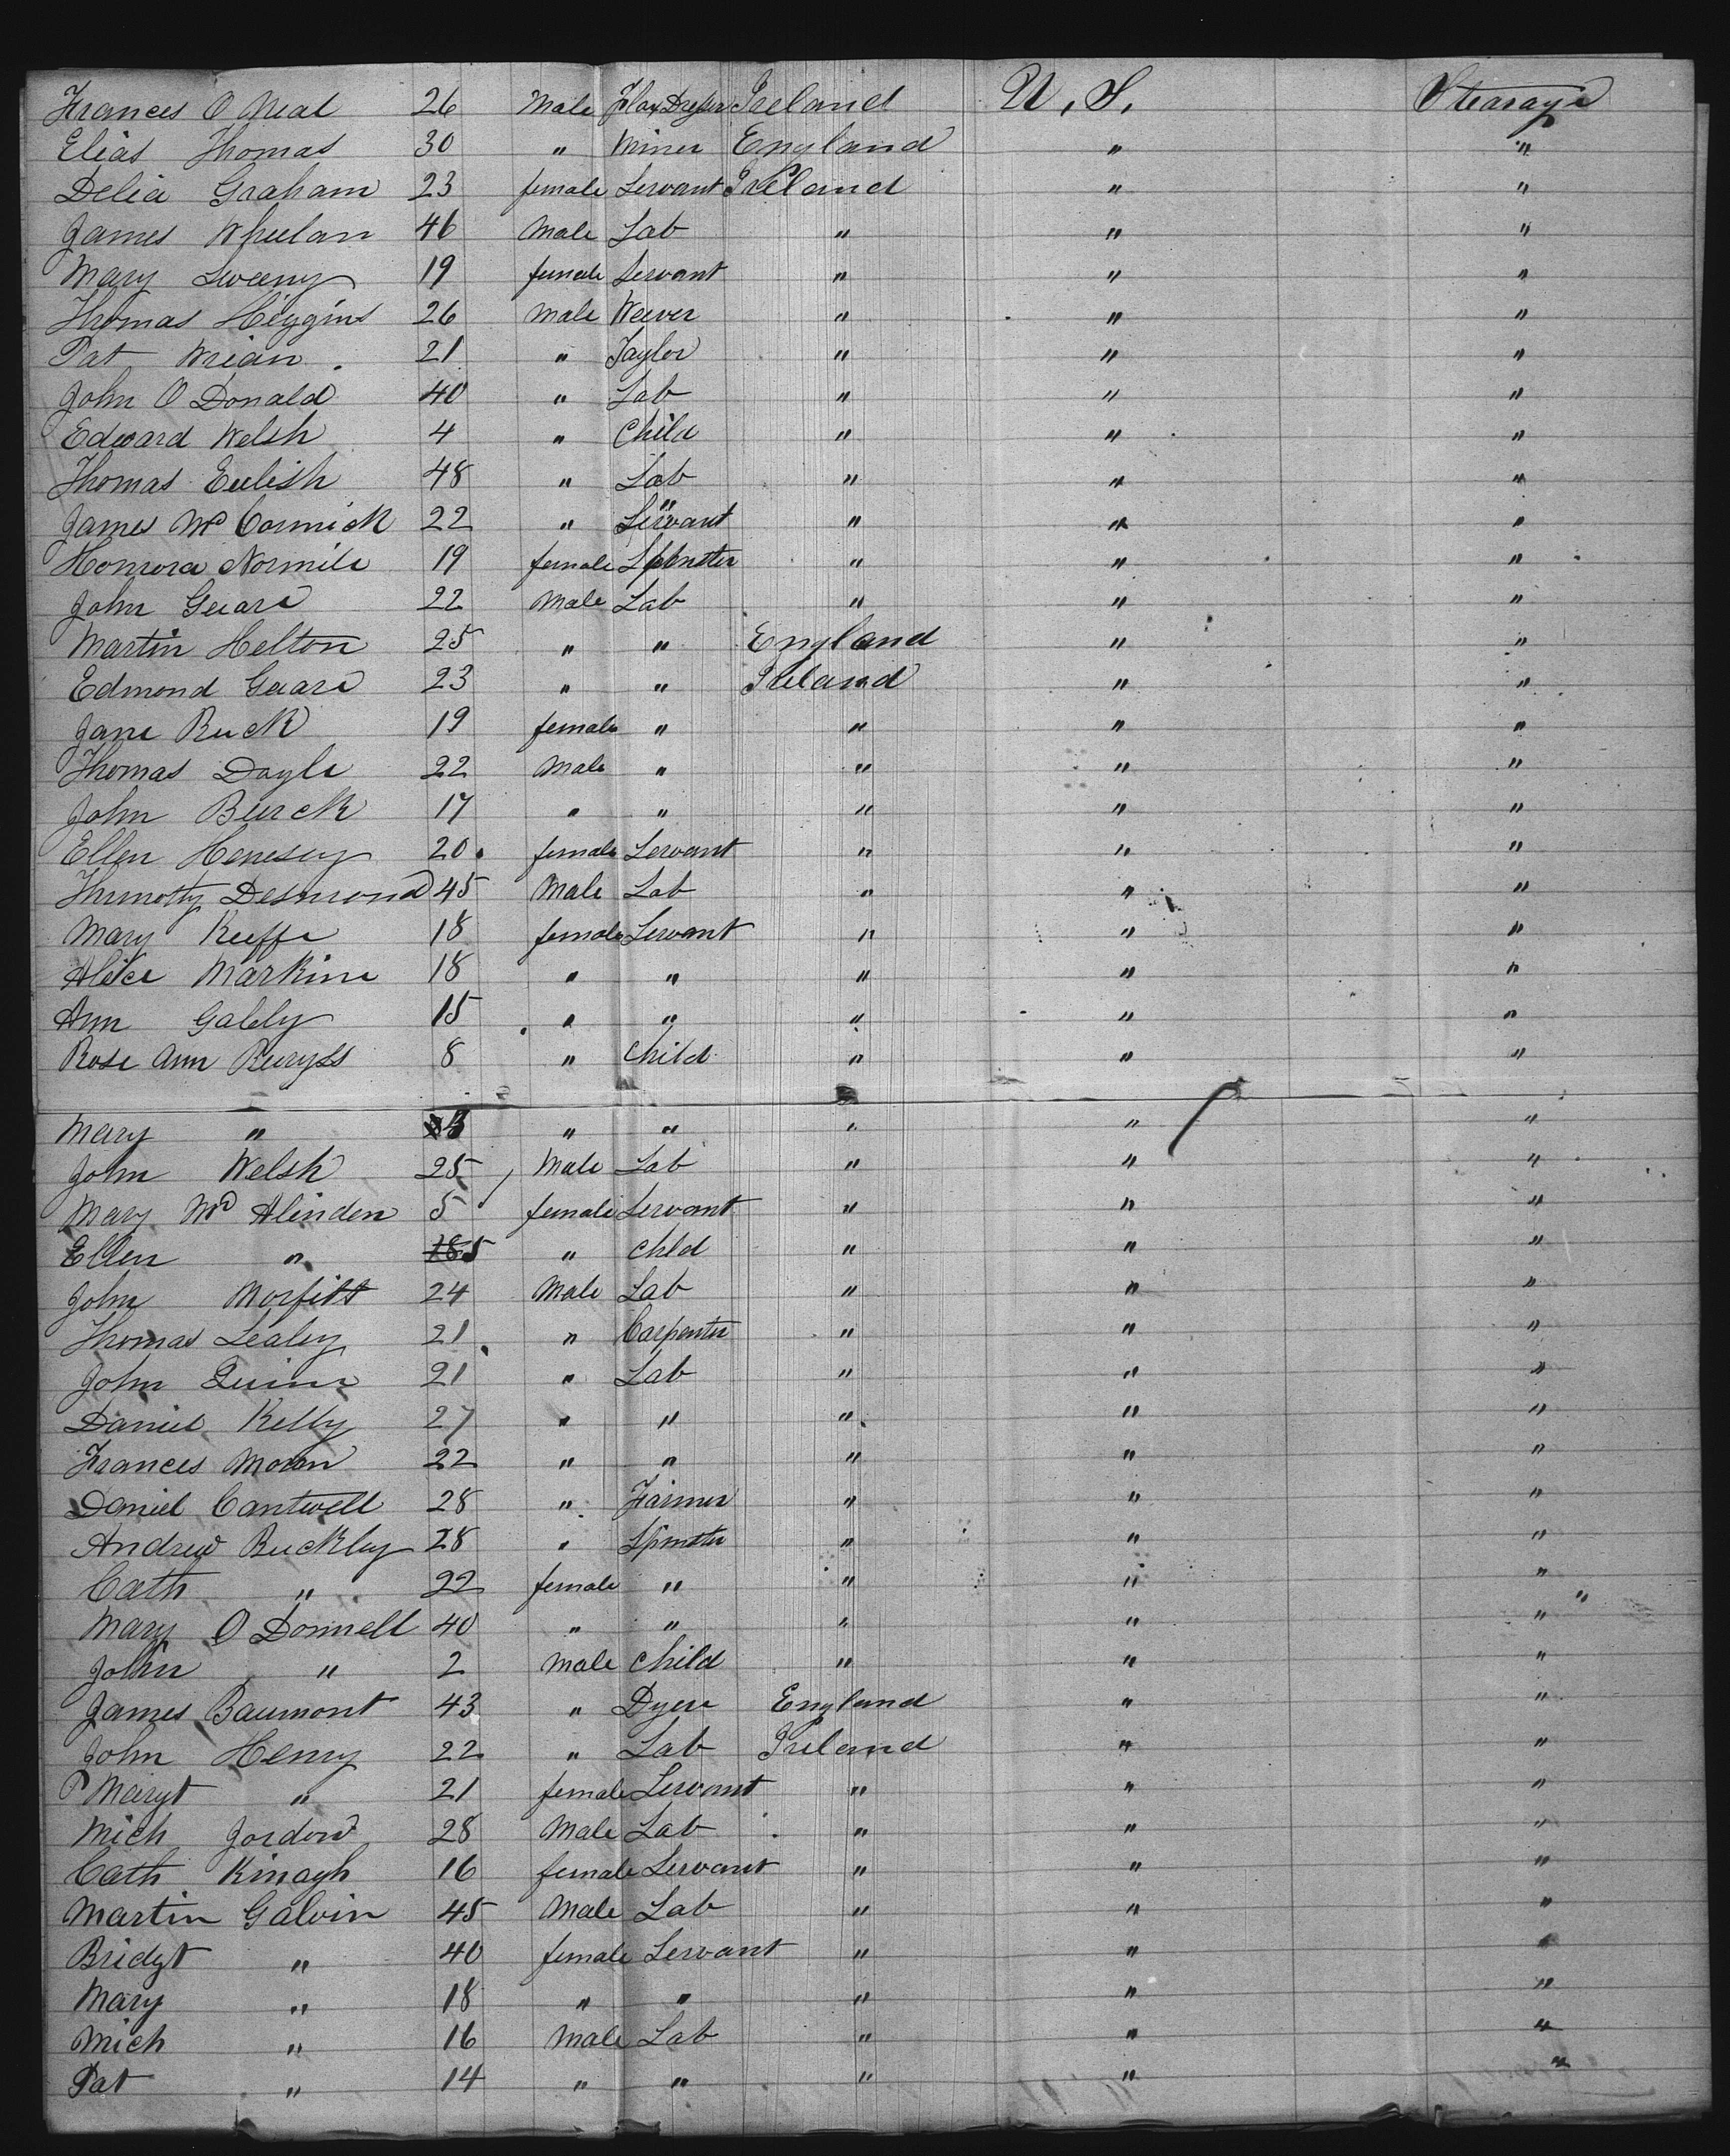 Frances O Neal 26 Male Flax Dresser Ireland U, S, Stearage
Elias Thomas 30 " Miner England " "
Delia Graham 23 female Servant Ireland " "
James Whelan 46 Male Lab " " "
Mary Sweeny 19 female Servant " " "
Thomas Higgins 26 Male Weever " " "
Pat Wrian 21 " Taylor " " "
John O Donald 40 " Lab " " "
Edward Welsh 4 " Child " " "
Thomas Eulish 48 " Lab " " "
James Mc Cormick 22 " Servant " " "
Honrora Normile 19 female Spinster " " "
John Geare 22 Male Lab " " "
Martin Helton 25 " " England " "
Edmond Geare 23 " " Ireland " "
Jane Buck 19 female " " " "
Thomas Doyle 22 Male " " " "
John Burck 17 " " " " "
Ellen Henesey 20 female Servant " " "
Thimothy Desmond 45 Male Lab " " "
Mary Keeffe 18 female Servant " " "
Alice Markine 18 " " " " "
Ann Gably 15 " " " " "
Rose Ann 8 " Child " " "
Mary " " " " " "
John Welsh 25 Male Lab " " "
Mary Mc Alinden 5 female Servant " " "
Ellen " 5 " Chld " " "
John Morfitt 24 Male Lab " " "
Thomas Lealey 21 " Carpenter " " "
John Quinn 21 " Lab " " "
Daniel Kelly 27 " " " " "
Frances Moran 22 " " " " "
Daniel Cantwell 28 " Farmer " " "
Andrew Buckley 28 " Spinster " " "
Cath " 22 female " " " "
Mary O Donnell 40 " " " " "
John " 2 Male Child " " "
James Baumont 43 " Dyer England " "
John Henry 22 " Lab Ireland " "
Margt " 21 female Servant " " "
Mich Jordon 28 Male Lab " " "
Cath Kinagh 16 female Servant " " "
Martin Galvin 45 Male Lab " " "
Bridgt " 40 female Servant " " "
Mary " 18 " " " " "
Mich " 16 Male Lab " " "
Pat " 14 " " " " "